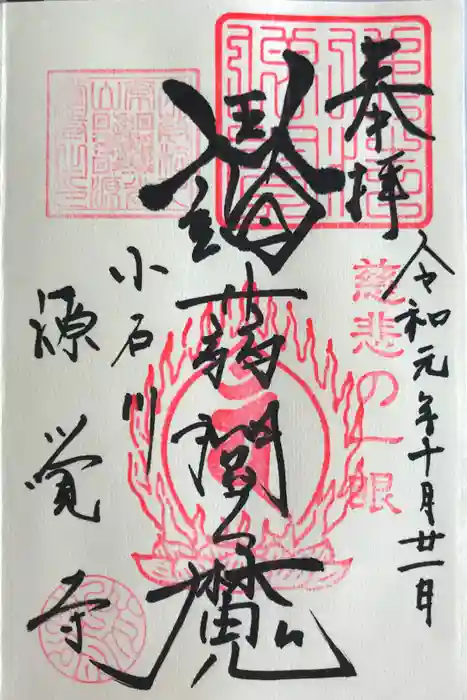 奉拝
令和元年十月廿一日
慈悲の一眼
蒟蒻閻魔
小石川
源覚寺